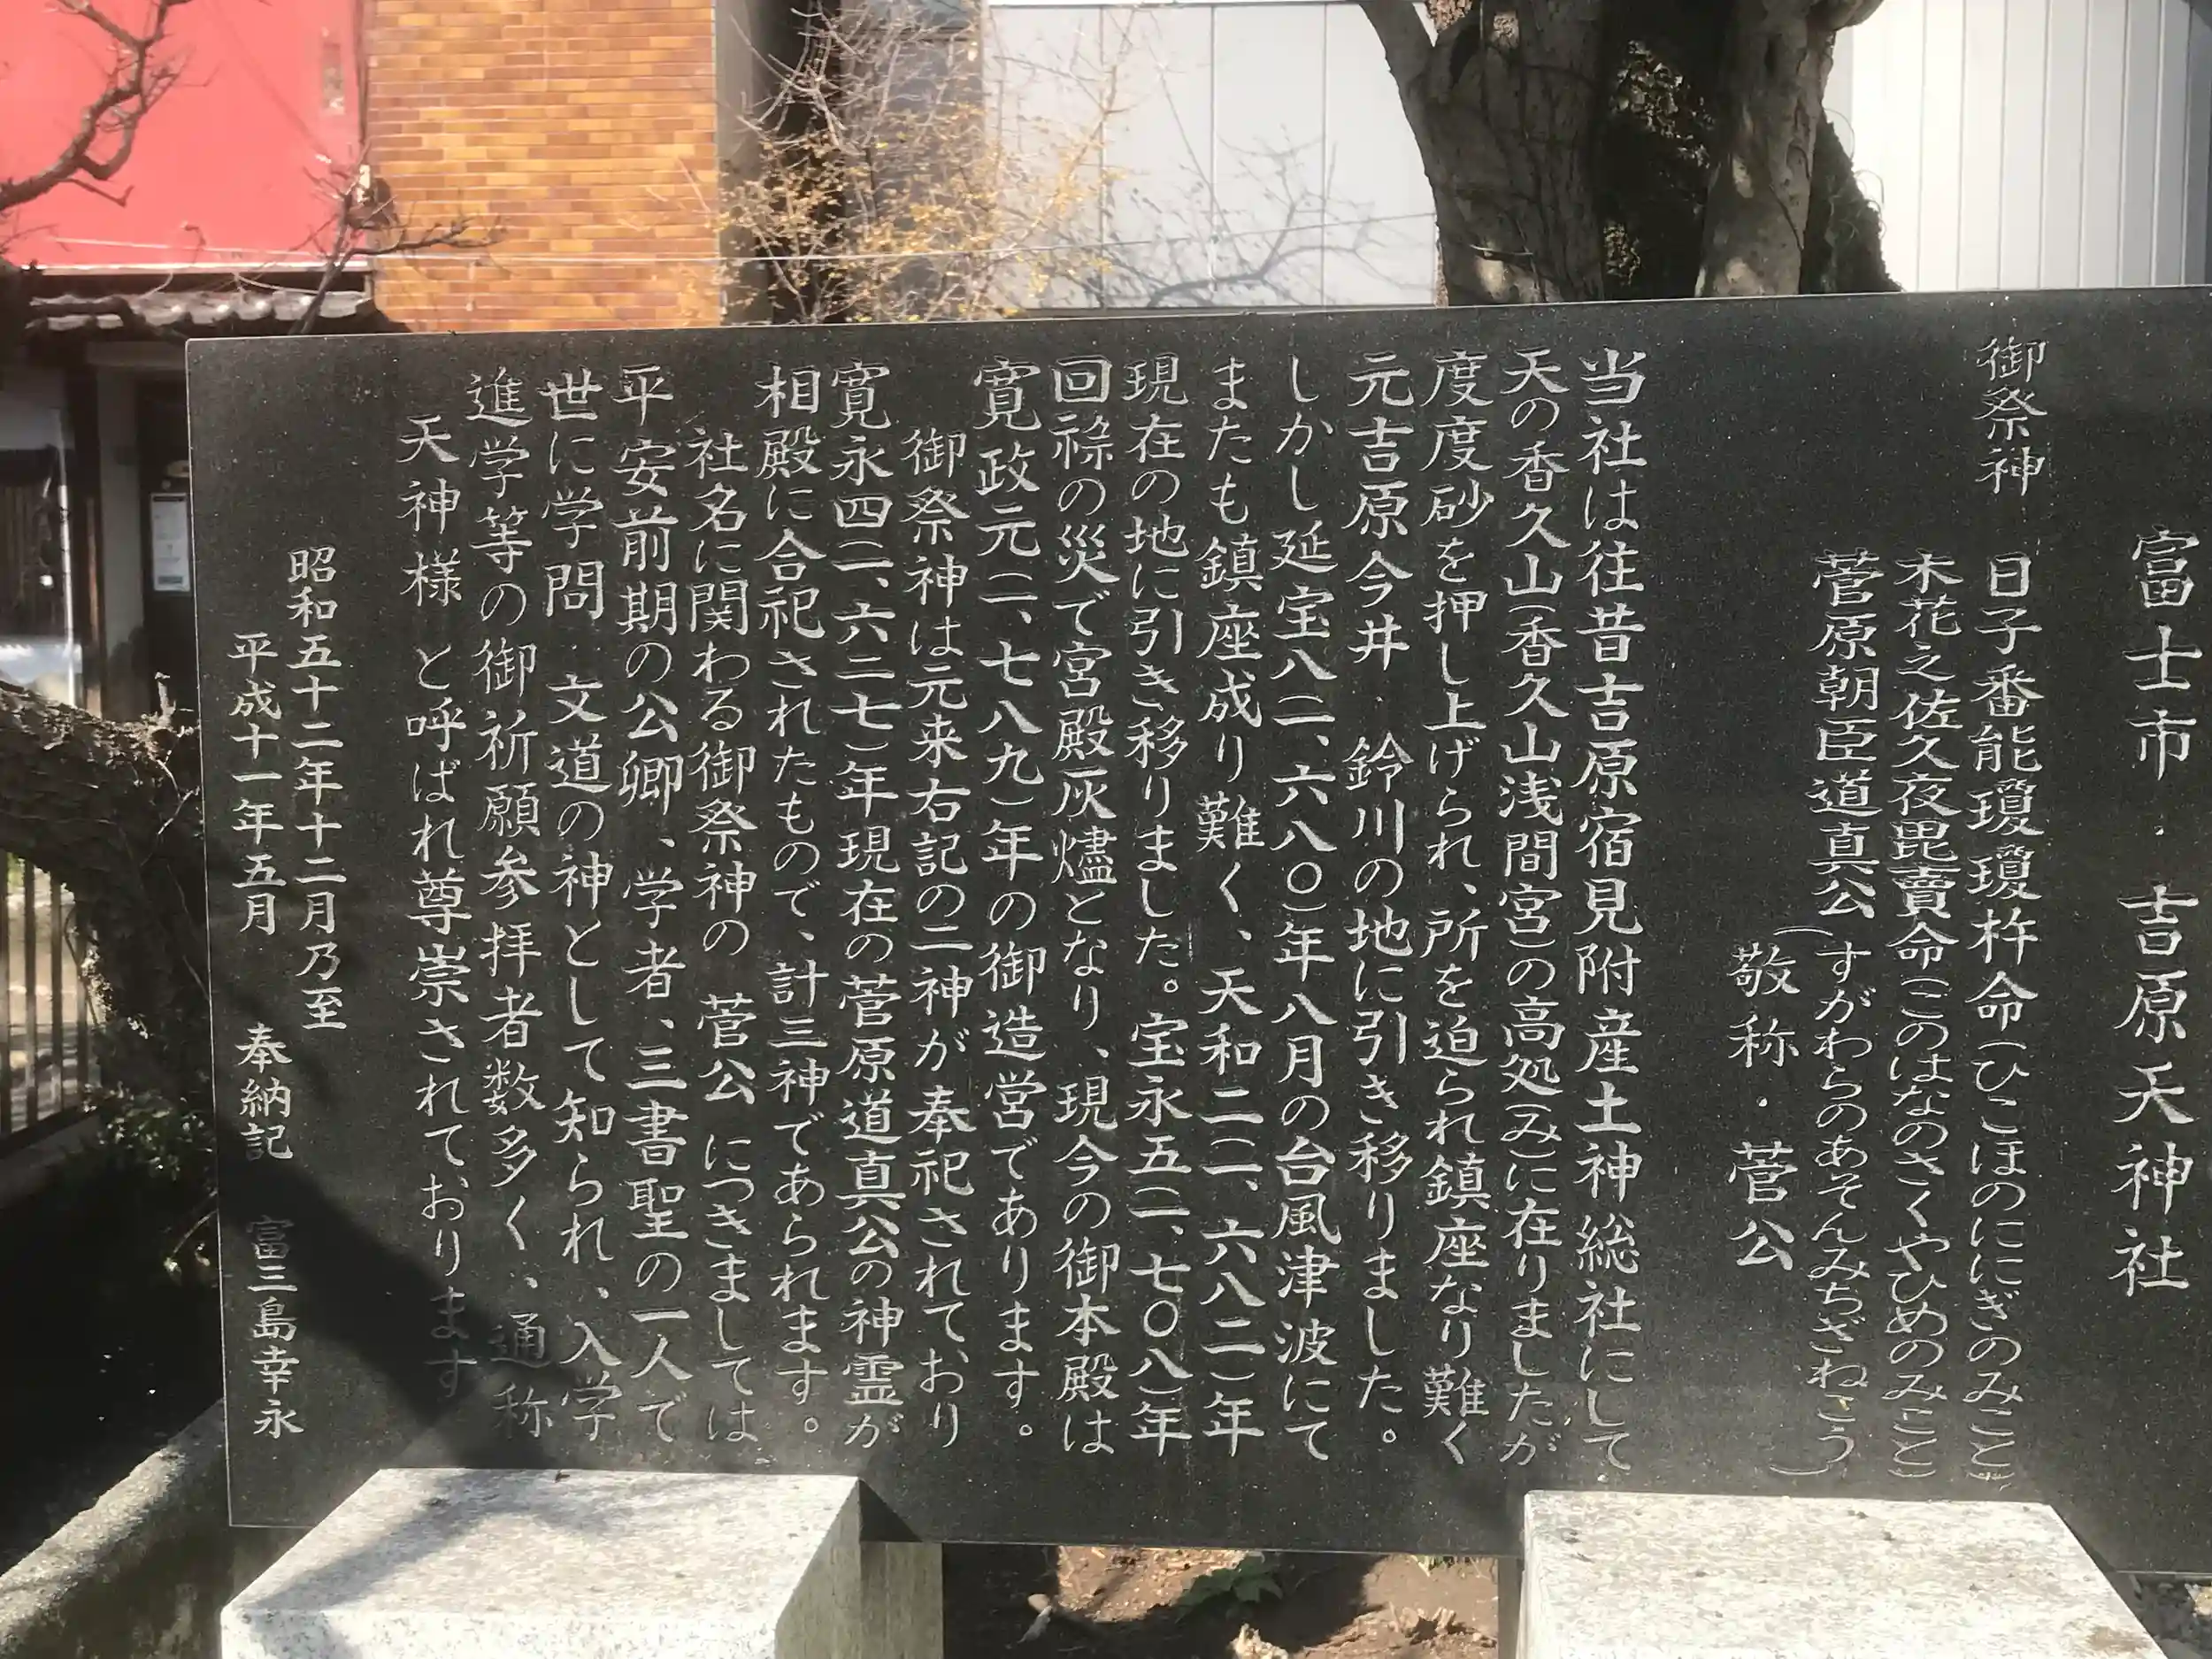 富士市・吉原天神社
御祭神 日子番能瓊瓊杵命(ひこほのににぎのみこと)
木花之佐久夜毘賣命(このはなのさくやひめのみこと)
菅原朝臣道真公(すがわらのあそんみちざねこう)
(敬称・菅公
当社は往昔吉原宿見附産土神総社にして
天の香久山(香久山浅間宮)の高処(み)に在りましたが
度度砂を押し上げられ、所を迫られ鎮座なり難く
元吉原今井・鈴川の地に引き移りました。
しかし延宝八(一、六八〇)年八月の台風津波にて
またも鎮座成り難く、天和二(一、六八二)年
現在の地に引き移りました。宝永五(一、七〇八)年
回祿の災で宮殿灰燼となり、現今の御本殿は
寛政元(一、七八九)年の御造営であります。
御祭神は元来右記の二神が奉祀されており
寛永四(一、六二七)年現在の菅原道真公の神霊が
相殿に合祀されたもので、計三神であられます。
社名に関わる御祭神の 菅公 につきましては
平安前期の公卿、学者、三書聖の一人で
世に学問・文道の神として知られ、入学
進学等の御祈願参拝者数多く、通称
天神様 と呼ばれ尊崇されております
昭和五十二年十二月乃至
平成十一年五月 奉納記 富三島幸永